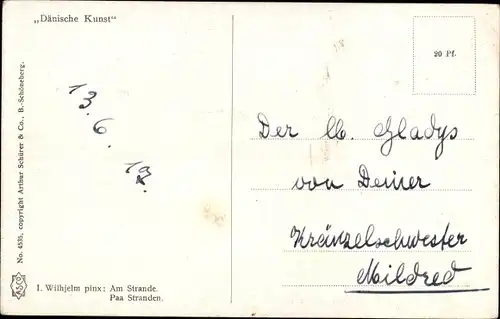 „Dänische Kunst“
20 Pf.
13.
6.
19.
Der lb. Gladys
von Deiner
Kränzelschwester
Mildred
No. 4535, copyright Arthur Schürer & Co., B.-Schöneberg.
I. Wilhjelm pinx: Am Strande.
Paa Stranden.